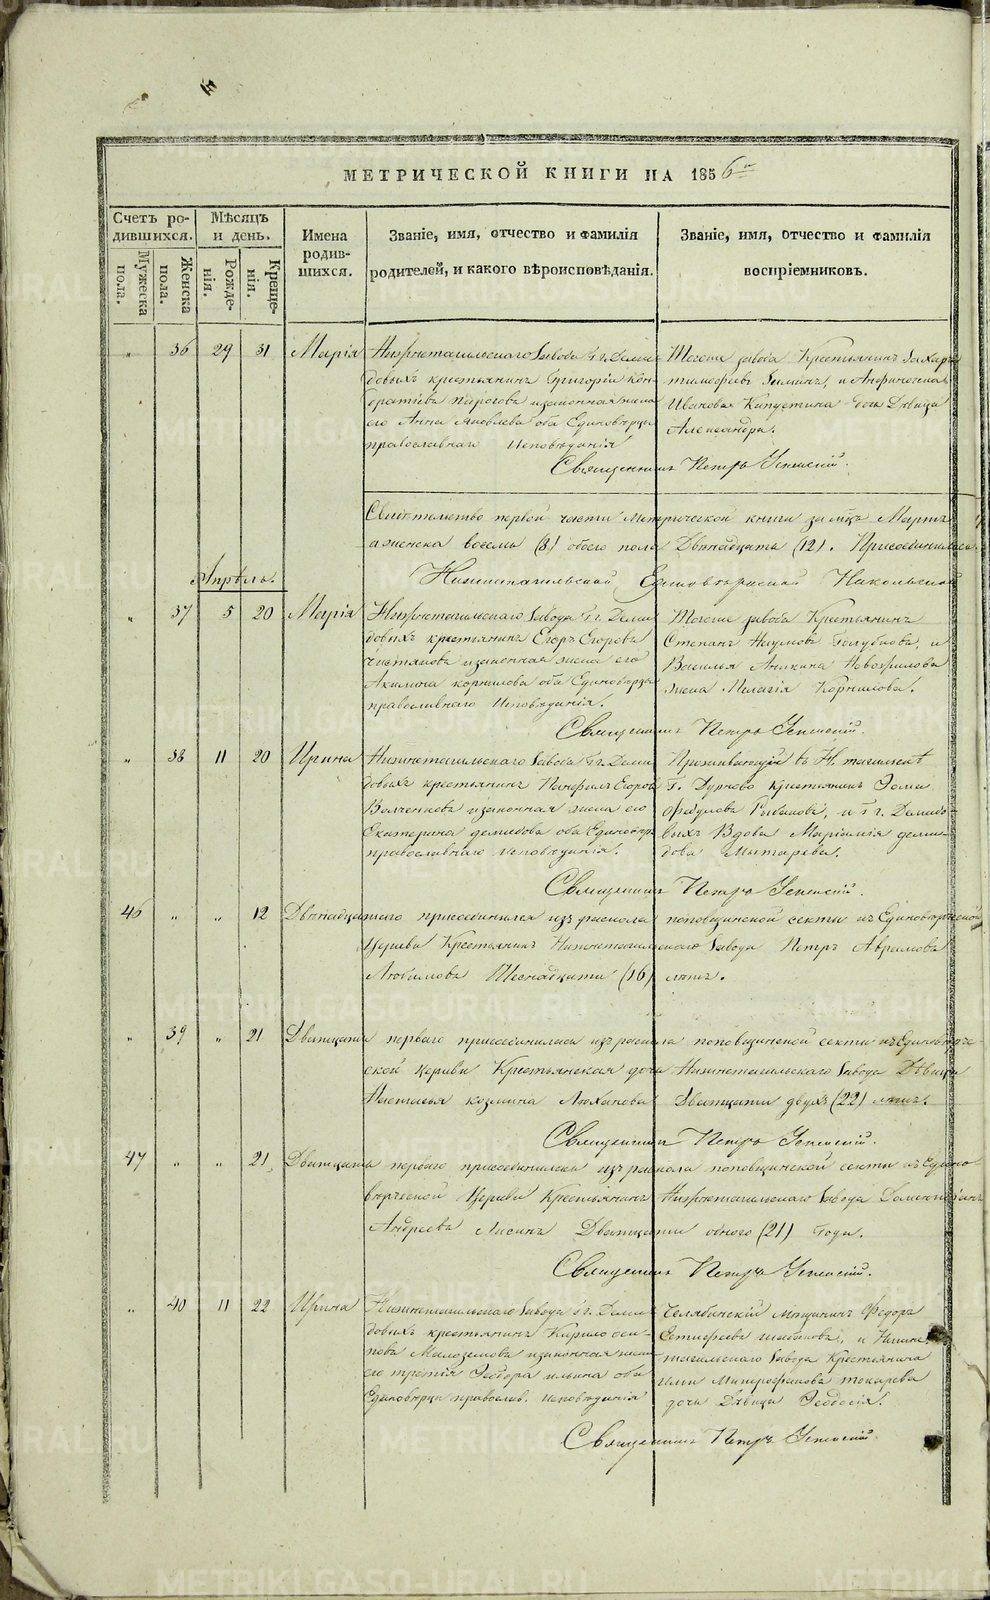 МЕТРИЧЕСКОЙ КНИГИ НА 1856й
Счетъ родившихся.
Мужеска пола.
Женска пола.
Мѣсяцъ и день.
Рожденія.
Крещенія.
Имена родившихся.
Званіе, имя, отчество и фамилія
родителей, и какого вѣроисповѣданія.
Званіе, имя, отчество и фамилія
воспріемниковъ.
" 36 29 31 Марія
Нижнетагильскаго завода Гг. Деми-
довыхъ крестьянинъ Григорій Кон-
дратьевъ Пироговъ и законная жена
его Анна Яковлева оба Единовѣрцы
православнаго исповѣданія
Тогоже завода Крестьянинъ Захаръ
Тимофеевъ и
Иванова Капустина дочь Дѣвица
Александра.
Священникъ Петръ Успенскій.
Свидѣтельство первой части Метрической книги за мцъ Мартъ
а женска восемь (8) обоего пола Двѣнадцать (12). Присоединилась
Нижнетагильской Единовѣрческой Никольской
Апрѣль.
" 37 5 20 Марія
Нижнетагильскаго завода Гг. Деми
довыхъ крестьянинъ Егоръ Егоровъ
Чистяковъ и законная жена его
Акилина Корнилова оба Единоверцы
православнаго Исповѣданія.
Тогоже завода Крестьянинъ
Степанъ Наумовъ Голубковъ, и
Василья Аникина
жена Пелагія Корнилова.
Священникъ Петръ Успенскій.
" 38 11 20 Ирина
Нижнетагильскаго завода Гг. Деми
довыхъ крестьянинъ Панфилъ Егоровъ
и законная жена его
Екатерина Демидова оба Единовѣр.
православнаго исповѣданія.
Проживающій въ Н. Тагильскѣ
Г. Дурново крестьянинъ Фома
Рыбаковъ, и Гг. Демидо-
выхъ Вдова Маріамія Деми-
дова Мытарева.
Священникъ Петръ Успенскій.
46 " " 12 Двѣнадцатаго присоединился изъ раскола поповщинской секты къ Единовѣрческой
Церкви Крестьянинъ Нижнетагильскаго завода Петръ Абрамовъ
Любимовъ Шеснадцати (16) лѣтъ.
" 39 " 21 Дватцать перваго присоединилась изъ раскола поповщинской секты къ Единовѣрче-
ской церкви Крестьянская дочь Нижнетагильскаго завода Дѣвица
Настасья Козмина Люханова Дватцати двухъ (22) лѣтъ.
Священникъ Петръ Успенскій.
47 " " 21 Дватцать перваго присоединился изъ раскола поповщинской секты къ Едино
вѣрческой Церкви Крестьянинъ Нижнетагильскаго завода Дометіянъ
Андреевъ Лисинъ Дватцати одного (21) Года.
Священникъ Петръ Успенскій.
" 40 11 22 Ирина
Нижнетагильскаго завода Гг. Деми
довыхъ крестьянинъ Кирило Оси-
повъ Малоземовъ и законная жена
его третія Феодора Ильина оба
Единовѣрцы православ. исповѣданія
Челябинскій Мещанинъ Федоръ
и Нижне-
тагильскаго завода Крестьянина
Митрофанова Токарева
дочь Дѣвица Феодосія.
Священникъ Петръ Успенскій.
METRIKI.GASO-URAL.RU